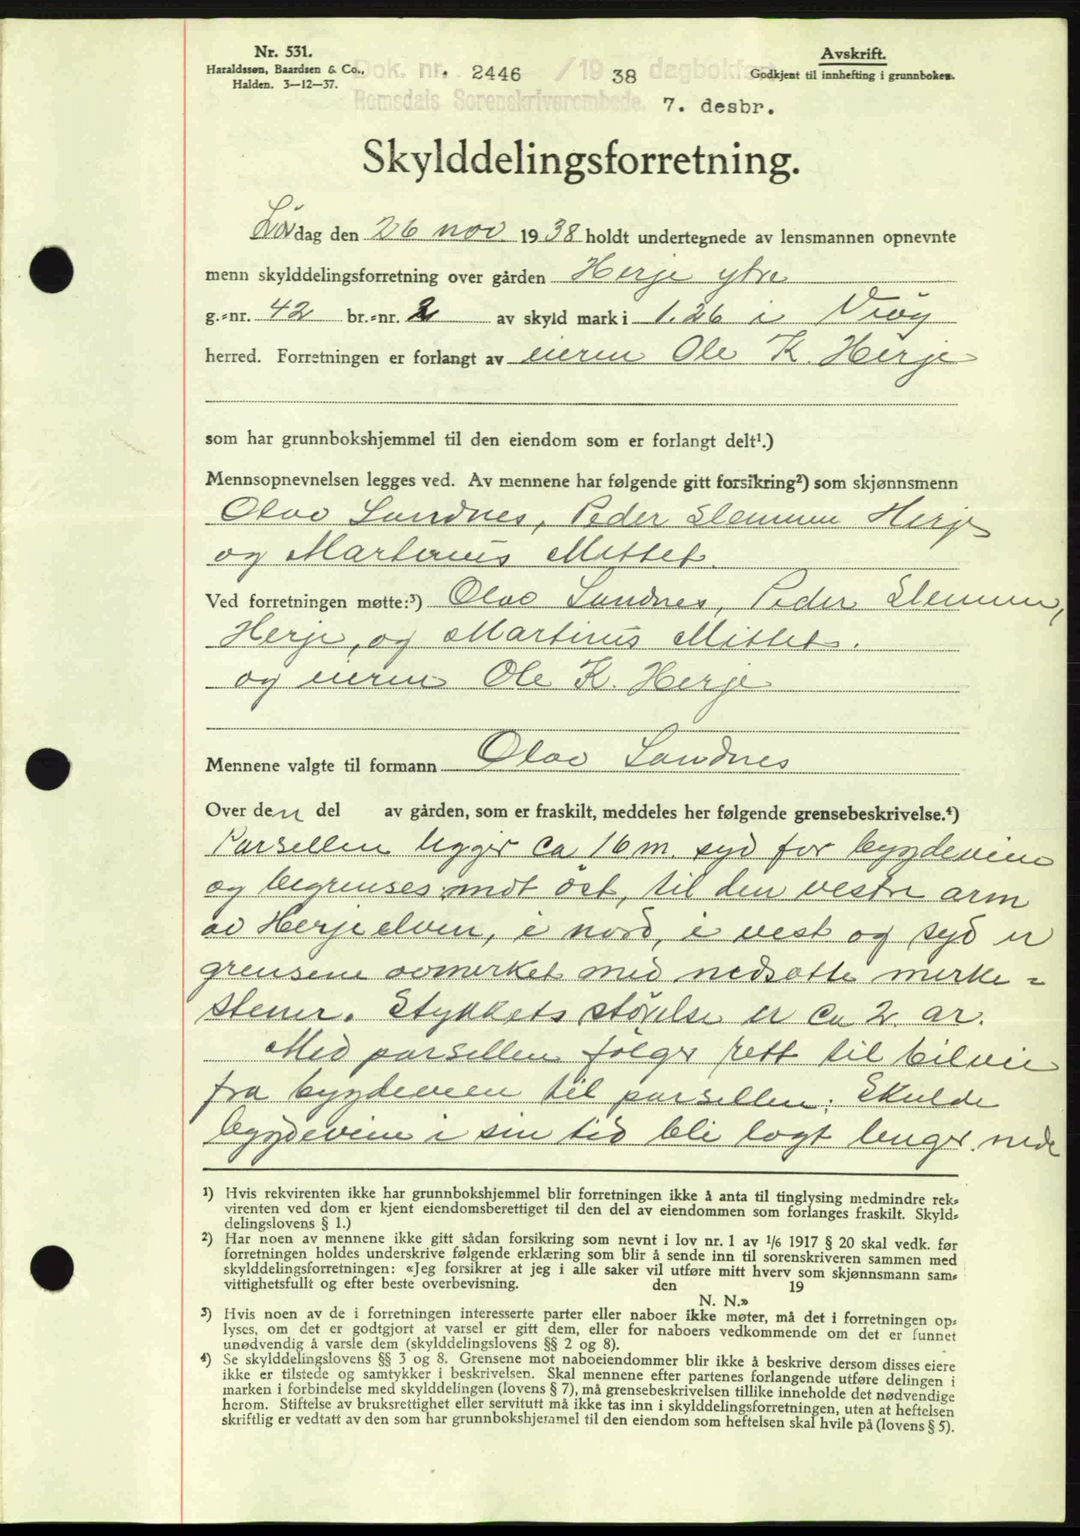 Nr. 531.
Haraldssøn, Baardsen & Co.,
Halden. 3—12—37.
Avskrift.
Godkjent til innhefting i grunnboken.
Dok. nr. 2446 /19 38 dagbokført
Romsdals Sorenskriverembede. 7. desbr.
Skylddelingsforretning.
Lørdag den 26 nov. 1938 holdt undertegnede av lensmannen opnevnte
menn skylddelingsforretning over gården Herje ytre
g.-nr. 42 br.-nr. 2 av skyld mark i 1.26 i Vråg
herred. Forretningen er forlangt av eieren Ole K. Herje
som har grunnbokshjemmel til den eiendom som er forlangt delt¹.)
Mennsopnevnelsen legges ved. Av mennene har følgende gitt forsikring²) som skjønnsmenn
Olav Sandnes, Peder Slemmen Herje
og Martinus Mittet.
Ved forretningen møtte:³) Olav Sandnes, Peder Slemmen,
Herje, og Martinus Mittet.
og eieren Ole K. Herje
Mennene valgte til formann Olav Sandnes
Over den del av gården, som er fraskilt, meddeles her følgende grensebeskrivelse.⁴)
Parsellen ligger ca 16 m. syd for bygdeveien
og begrenses mot öst, til den vestre arm
av Herjeelven, i nord, i vest og syd er
grensene avmerket med nedsatte merke=
stener. Stykkets störelse er ca 2. ar.
Med parsellen fölger rett til bilvei
fra bygdeveien til parsellen. Skulde
bygdeveien i sin tid bli lagt lenger nede
¹) Hvis rekvirenten ikke har grunnbokshjemmel blir forretningen ikke å anta til tinglysing medmindre rek-
virenten ved dom er kjent eiendomsberettiget til den del av eiendommen som forlanges fraskilt. Skyld-
delingslovens § 1.)
²) Har noen av mennene ikke gitt sådan forsikring som nevnt i lov nr. 1 av 1/6 1917 § 20 skal vedk. før
forretningen holdes underskrive følgende erklæring som blir å sende inn til sorenskriveren sammen med
skylddelingsforretningen: «Jeg forsikrer at jeg i alle saker vil utføre mitt hverv som skjønnsmann sam-
vittighetsfullt og efter beste overbevisning. den 19
N. N.»
³) Hvis noen av de i forretningen interesserte parter eller naboer ikke møter, må det i forretningen op-
lyses, om det er godtgjort at varsel er gitt dem, eller for naboers vedkommende om det er funnet
unødvendig å varsle dem (skylddelingslovens §§ 2 og 8).
⁴) Se skylddelingslovens §§ 3 og 8. Grensene mot naboeiendommer blir ikke å beskrive dersom disses eiere
ikke er tilstede og samtykker i beskrivelsen. Skal mennene efter partenes forlangende utføre delingen i
marken i forbindelse med skylddelingen (lovens § 7), må grensebeskrivelsen tillike inneholde det nødvendige
herom. Stiftelse av bruksrettighet eller servitutt må ikke tas inn i skylddelingsforretningen, uten at heftelsen
skriftlig er vedtatt av den som har grunnbokshjemmel til den eiendom som heftelsen skal hvile på (lovens § 5).